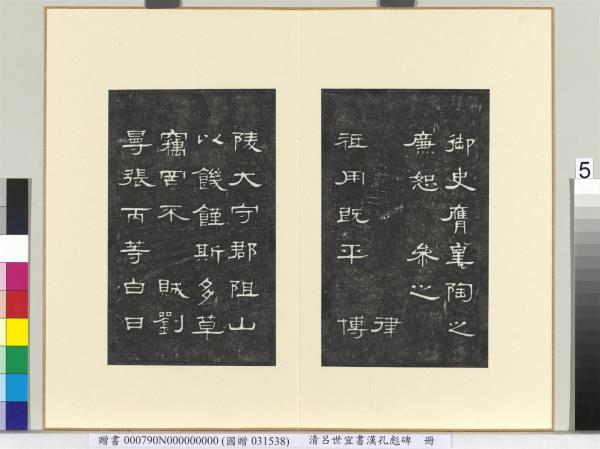 御史膺皋陶之
廉恕 叅之
律
祖用既平 博
陵大守郡阻山
以饑饉斯多草
竊罔不 賊劉
曼張丙等白日
5
贈書 000790N000000000 (國贈 031538) 清呂世宜書漢孔彪碑 冊